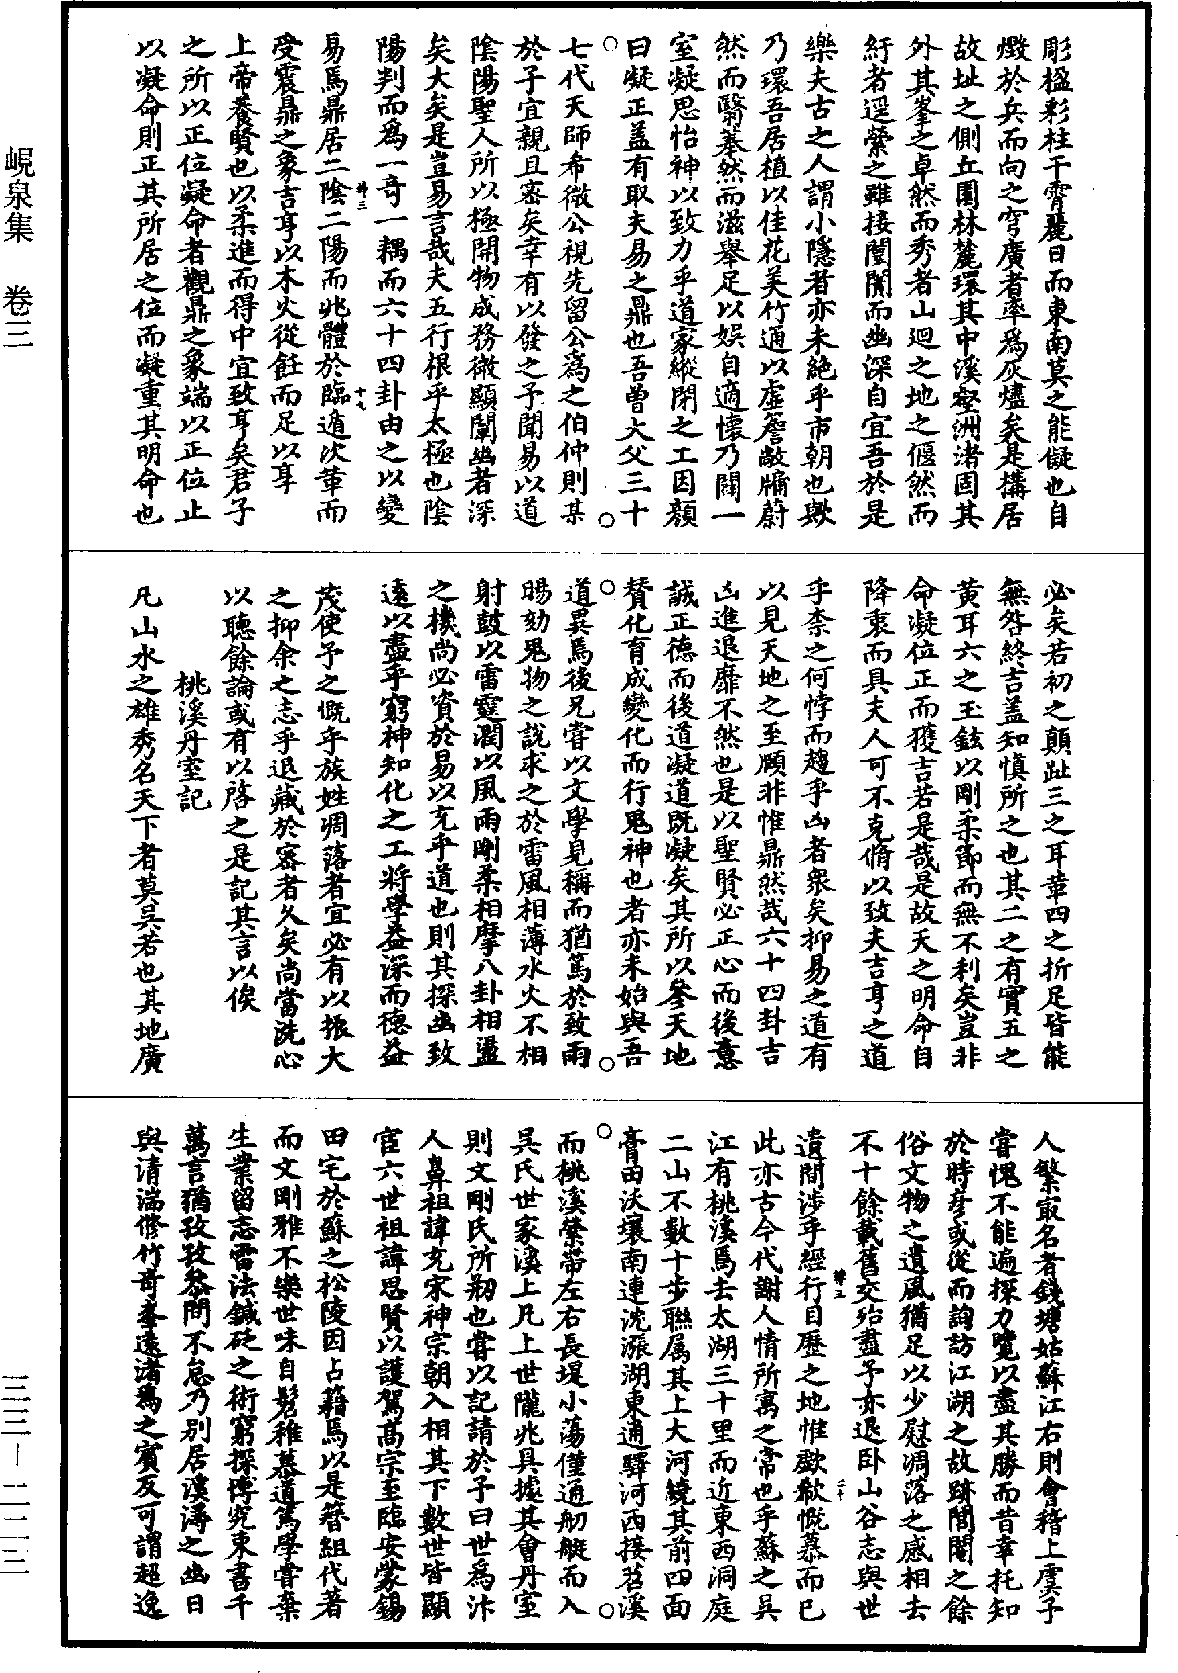 峴泉集　卷三
三三－二二三
彫楹彩柱干霄麗日而東南莫之能儗也自
燬於兵而向之穹廣者率爲灰燼矣是構居
故址之側丘園林麓環其中溪壑洲渚固其
外其峯之卓然而秀者山迴之地之偃然而
紆者逕縈之雖接闤闠而幽深自宜吾於是
樂夫古之人謂小隱者亦未絕乎市朝也歟
乃環吾居植以佳花美竹通以虛簷敞牖蔚
然而翳蓁然而滋舉足以娛自適懷乃闢一
室凝思怡神以致力乎道家縱閉之工因顏
曰凝正蓋有取夫易之鼎也吾曾大父三十
七代天師希微公視先留公爲之伯仲則某
於子宜親且密矣幸有以發之予聞易以道
陰陽聖人所以極開物成務微顯闡幽者深
矣大矣是豈易言哉夫五行根乎太極也陰
陽判而爲一奇一耦而六十四卦由之以變
易焉鼎居二陰二陽而兆體於臨遁次革而
受震鼎之象吉亨以木火從飪而足以享
上帝養賢也以柔進而得中宜致亨矣君子
之所以正位凝命者觀鼎之象端以正位止
以凝命則正其所居之位而凝重其明命也
必矣若初之顛趾三之耳革四之折足皆能
無咎終吉蓋知慎所之也其二之有實五之
黃耳六之玉鉉以剛柔節而無不利矣豈非
命凝位正而獲吉若是哉是故天之明命自
降衷而具夫人可不克脩以致夫吉亨之道
乎柰之何悖而趨乎凶者衆矣抑易之道有
以見天地之至賾非惟鼎然哉六十四卦吉
凶進退靡不然也是以聖賢必正心而後意
誠正德而後道凝道既凝矣其所以參天地
賛化育成變化而行鬼神也者亦未始與吾
道異焉後兄嘗以文學見稱而猶篤於致雨
暘劾鬼物之說求之於雷風相薄水火不相
射鼓以雷霆潤以風雨剛柔相摩八卦相盪
之機尚必資於易以充乎道也則其探幽致
遠以盡乎窮神知化之工將學益深而德益
茂使予之慨乎族姓凋落者宜必有以振大
之抑余之志乎退藏於密者久矣尚當洗心
以聽餘論或有以啓之是記其言以俟
桃溪丹室記
凡山水之雄秀名天下者莫吳若也其地廣
人繁㝡名者錢塘姑蘇江右則會稽上虞予
嘗愧不能遍探力覽以盡其勝而昔幸托知
於時彦或從而詢訪江湖之故跡閭閻之餘
俗文物之遺風猶足以少慰凋落之感相去
不十餘載舊交殆盡予亦退卧山谷志與世
遺間涉乎經行目歷之地惟歔欷慨慕而已
此亦古今代謝人情所寓之常也乎蘇之吳
江有桃溪焉去太湖三十里而近東西洞庭
二山不數十步聯属其上大河繞其前四面
膏田沃壤南連沈漲湖東通驛河西接苕溪
而桃溪縈帶左右長堤小蕩僅通舠艇而入
吳氏世家溪上凡上世隴兆具據其會丹室
則文剛氏所剏也嘗以記請於予曰世爲汴
人鼻祖諱充宋神宗朝入相其下數世皆顯
宦六世祖諱思賢以護駕高宗至臨安蒙錫
田宅於蘇之松陵因占籍焉以是簪組代著
而文剛雅不樂世味自髫稚慕道篤學嘗棄
生業留志雷法鍼砭之術窮探博究束書千
萬言猶孜孜叅問不怠乃別居溪潯之幽日
與清湍修竹奇峯遠渚爲之賓友可謂超逸